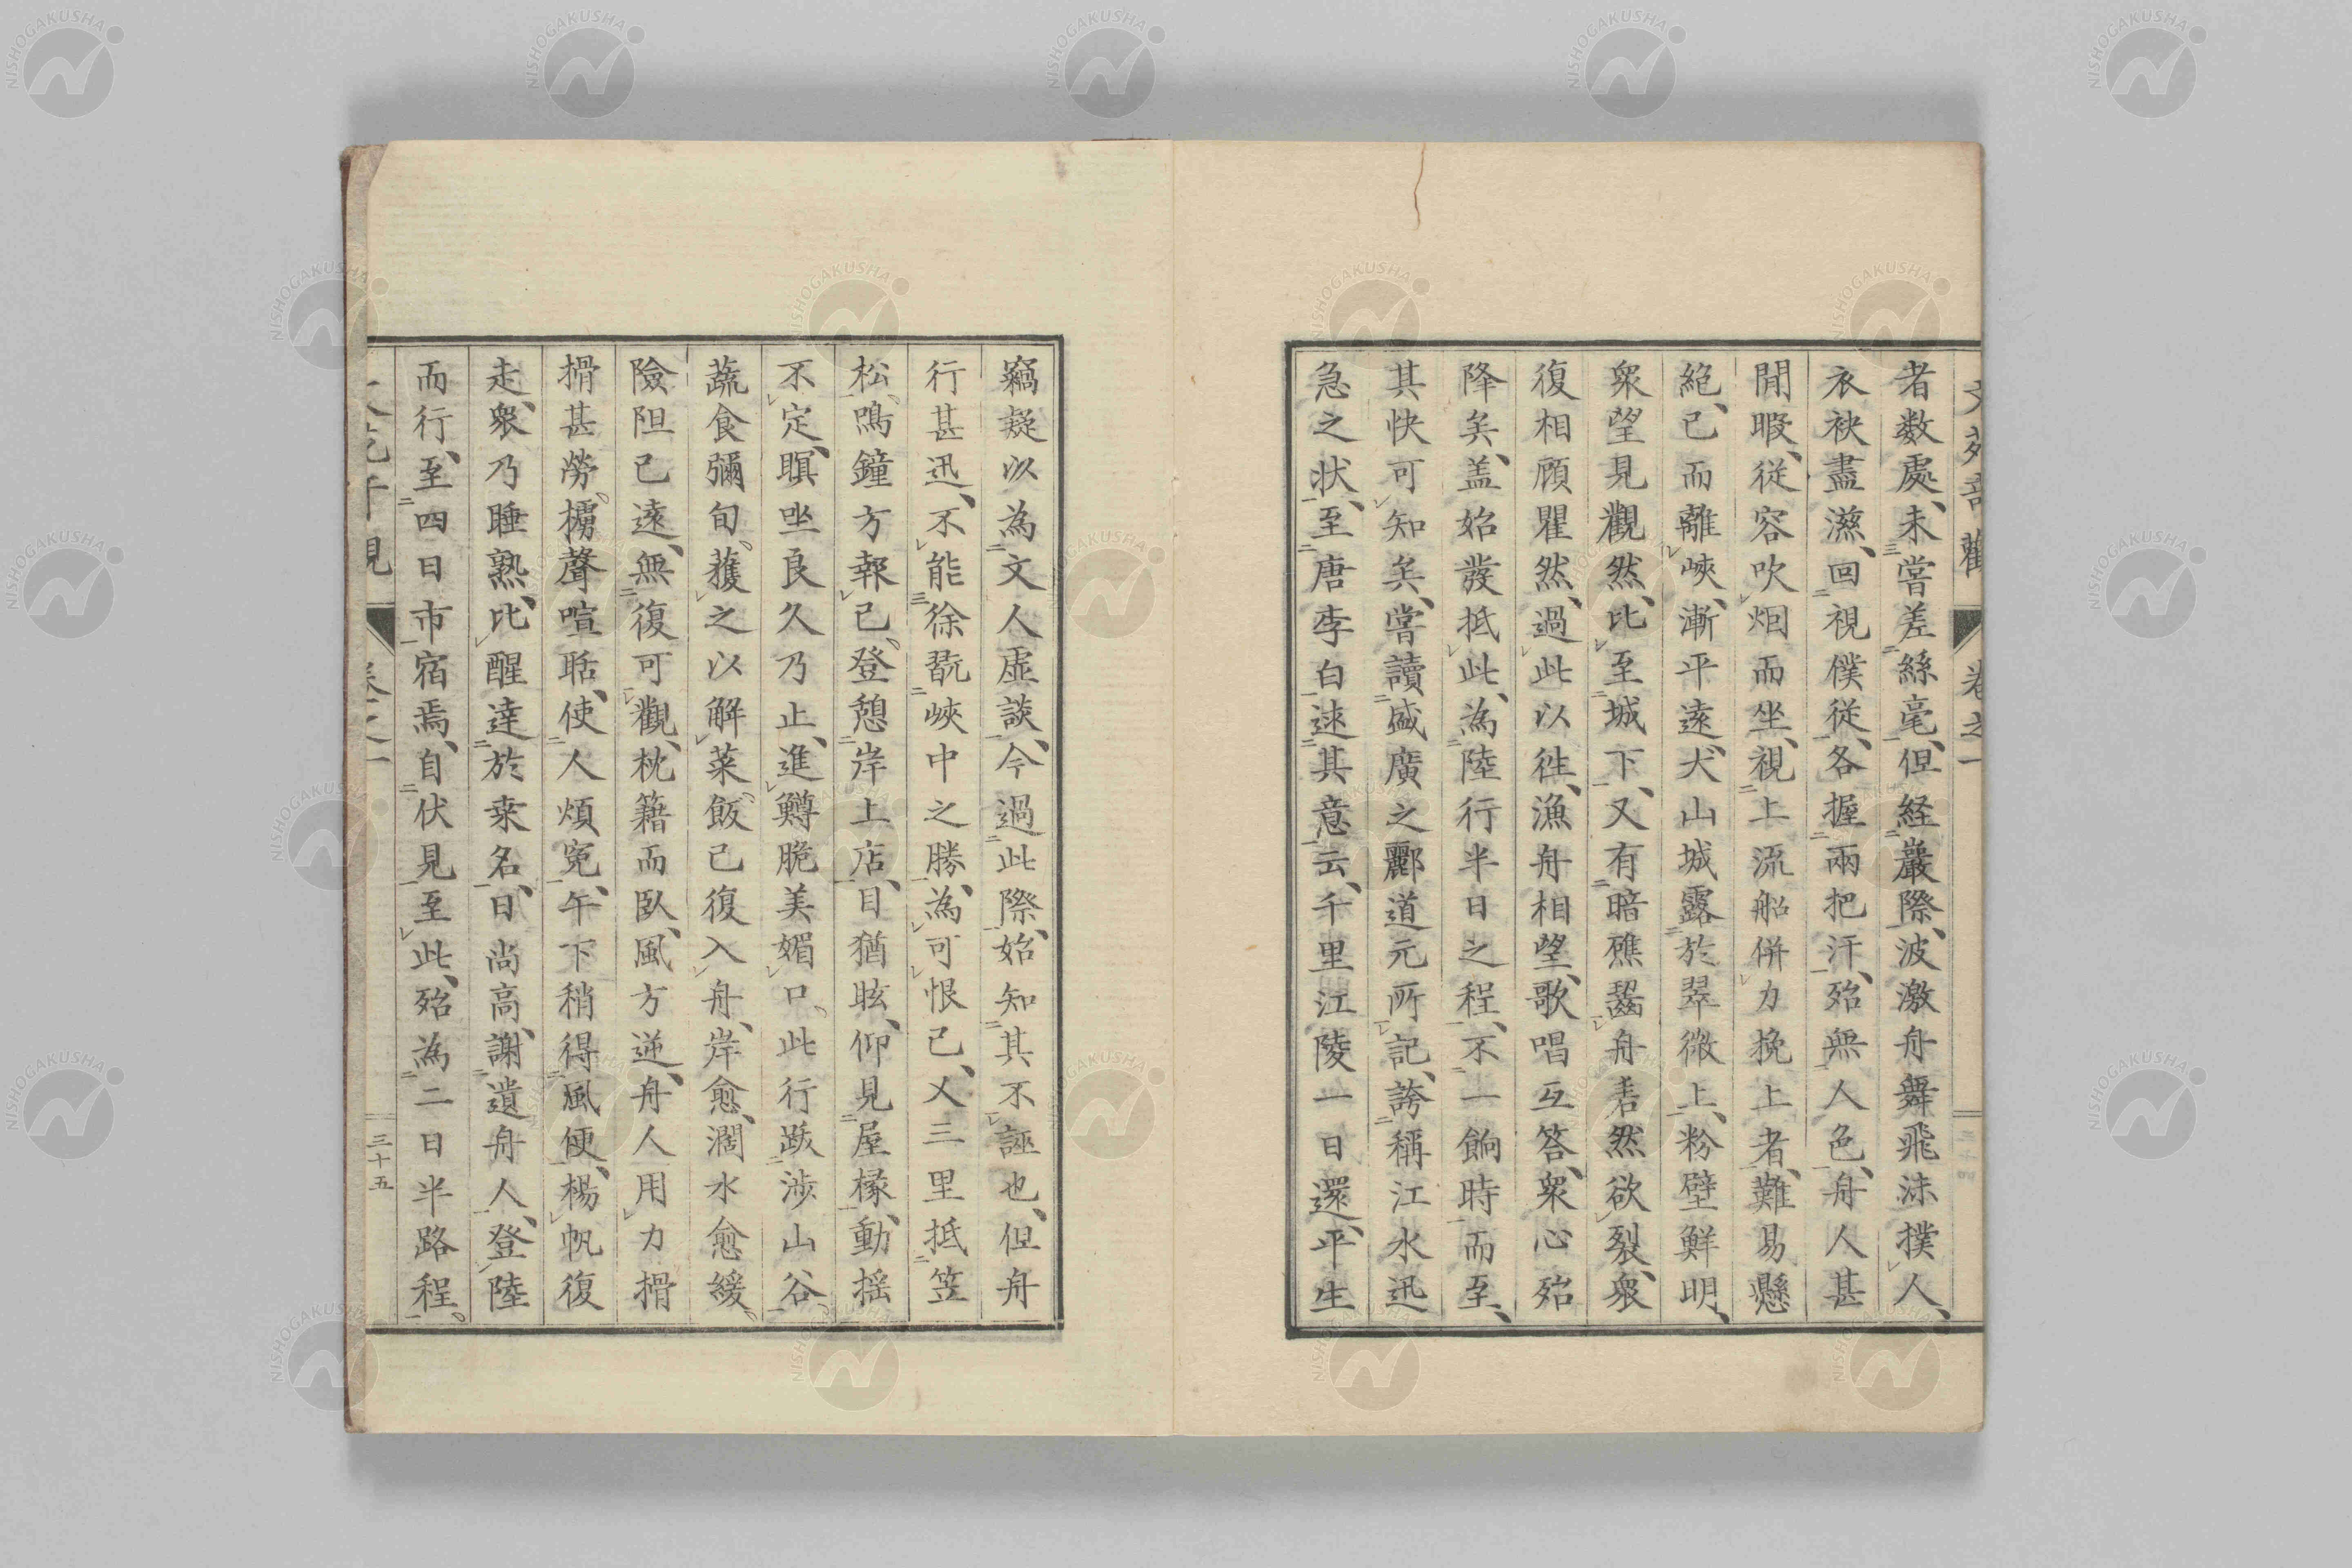 者数處、未嘗差絲毫、但経巖際、波激舟舞飛沫撲人、
衣袂盡濨、回視僕従、各握兩把汗、殆無人色、舟人甚
閒暇、従容吹烟而坐、視上流船併力挽上者、難易懸
絕、已而離峽、漸平遠、犬山城露於翠微上、粉壁鮮明、
衆望見觀然、比至城下、又有暗礁齧舟砉然欲裂、衆
復相顧瞿然、過此以徃、漁舟相望、歌唱互答、衆心殆
降矣、盖始發抵此、為陸行半日之程、不一餉時而至、
其快可知矣、嘗讀盛廣之酈道元所記、誇稱江水迅
急之状、至唐李白述其意云、千里江陵一日還、平生
竊疑以為文人虛談、今過此際、始知其不誣也、但舟
行甚迅、不能徐翫峽中之勝、為可恨已、又三里抵笠
松、鳴鐘方報已、登憩岸上店、目猶眩、仰見屋椽、動搖
不定、瞑坐良久乃止、進鱒脆美媚口、此行跋涉山谷
蔬食彌旬、蒦之以解菜飯已復入舟、岸愈濶水愈緩
險阻已遠、無復可觀、枕籍而臥、風方逆、舟人用力搰
搰甚勞、櫓聲喧聒、使人煩冤、午下稍得風便、楊帆復
走、衆乃睡熟、比醒達於桒名、日尚高、謝遺舟人、登陸
而行、至四日市宿焉、自伏見至此、殆為二日半路程。
三十五
文苑奇觀
卷之一